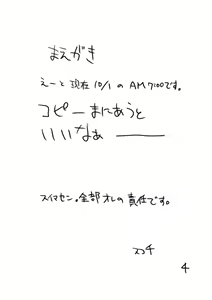 まえがき
えーと現在10/1のAM7:00です。
コピーまにあうと
いいなぁ――
スイマセン。全部オレの責任です。
4